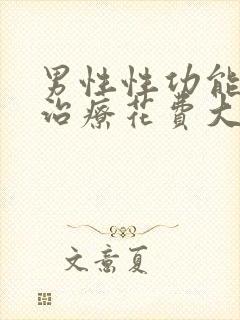 男性性功能
治療花費大
文意夏